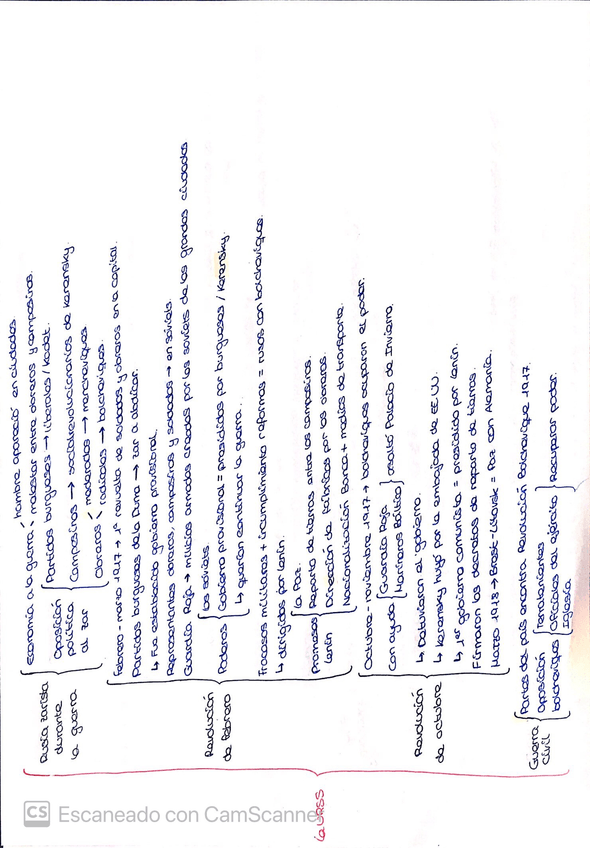 La URSS
Rusia zarista
durante
la guerra
Economía a la guerra
Hambre apareció en ciudades
malestar entre obreros y campesinos.
Oposición
política
al zar
Partidos burgueses → liberales / kadet.
Campesinos → socialrevolucionarios de Kerensky.
Obreros
moderados → mencheviques
radicales → bolcheviques.
Revolución
de febrero
Febrero - marzo 1917 → 1ª revuelta de soldados y obreros en a capital.
Partidos burgueses de la Duma → zar a abdicar.
↳ Fue establecido gobierno provisional.
Representantes obreros, campesinos y soldados → en sóviets
Guardia Roja → milicias armadas creadas por los soviets de las grandes ciudades
Poderes
Los sóviets
Gobierno provisional = presididos por burgueses / Kerensky.
↳ querían continuar la guerra.
Fracasos militares + incumplimiento reformas = rusos con bolcheviques.
↳ dirigidos por Lenin.
Promesas
Lenin
La Paz.
Reparto de tierras entre los campesinos.
Dirección de fábricas por los obreros.
Nacionalización Banca + medios de transporte.
Revolución
de octubre
Octubre - noviembre 1917 → bolcheviques ocuparon el poder.
con ayuda
Guardia Roja
Marineros Báltico
asalló Palacio de Invierno.
↳ Detuvieron al gobierno.
↳ Kerensky huyó por la embajada de EEUU.
↳ 1er gobierno comunista = presidido por Lenin.
Firmaron los decretos de reparto de tierras.
Marzo 1918 → Brest-Litovsk = Paz con Alemania.
Guerra
Civil
Partes del país encontra Revolución Bolchevique 1917.
Oposición
bolcheviques
Terratenientes
Oficiales del ejército
Iglesia
Recuperar poder.
CS Escaneado con CamScanner